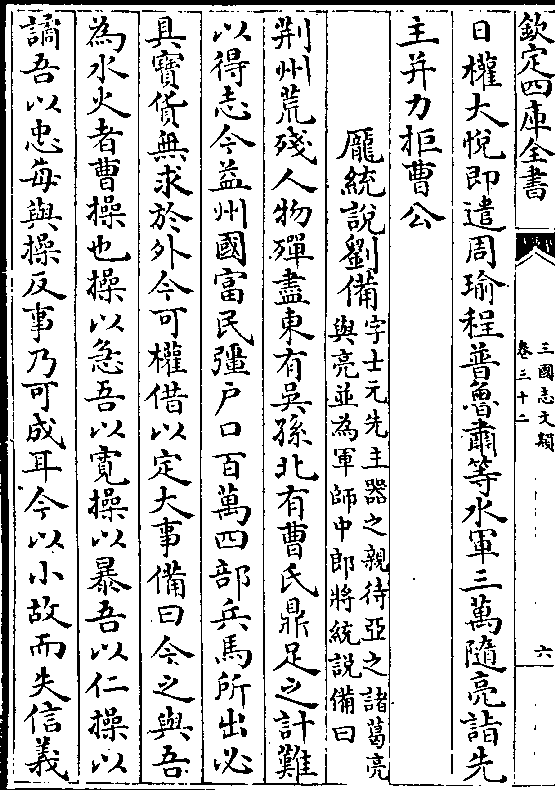 欽定四庫全書
三國志文類
卷三十二
六
日權大悅即遣周瑜程普魯肅等水軍三萬隨亮詣先
主并力拒曹公
龐統說劉備
字士元先主器之親待亞之諸葛亮
與亮並為軍師中郎將統説備曰
荆州荒殘人物殫盡東有吳孫北有曹氏鼎足之計難
以得志今益州國富民彊户口百萬四部兵馬所出必
具寶貨無求於外今可權借以定大事備曰今之與吾
為水火者曹操也操以急吾以寛操以暴吾以仁操以
譎吾以忠每與操反事乃可成耳今以小故而失信義